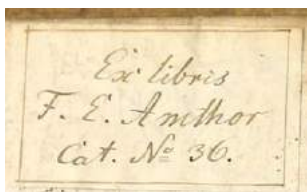 Ex libris
F. E. Amthor
Cat. No 36.